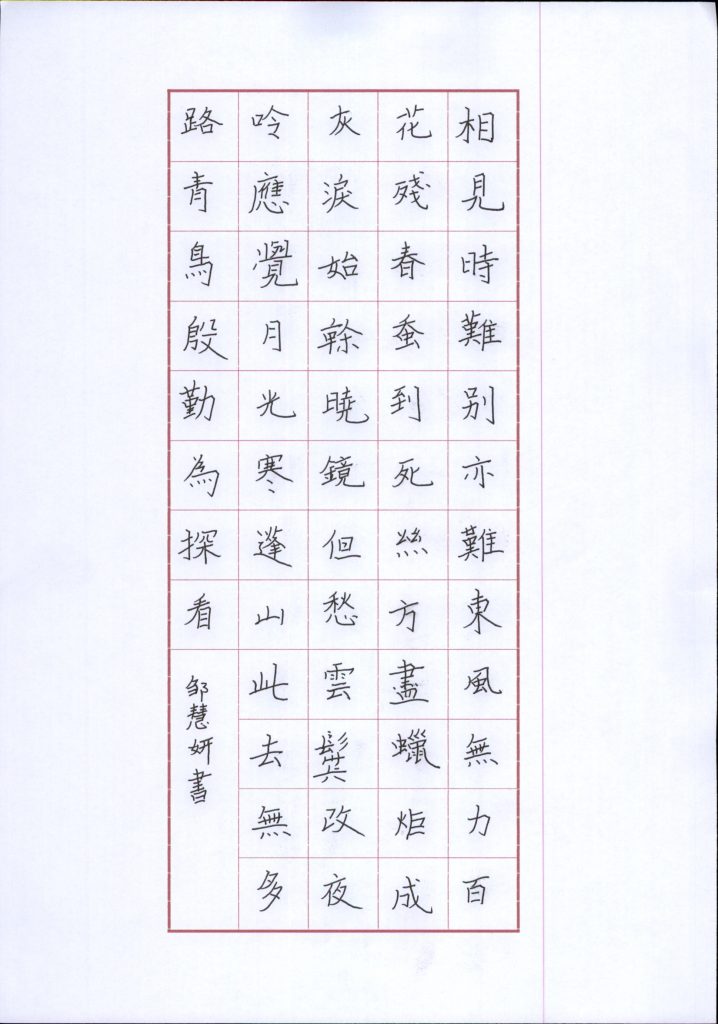 相見時難别亦難東風無力百
花殘春蚕到死絲方盡蠟炬成
灰淚始乾曉鏡但愁雲鬢改夜
吟應覺月光寒蓬山此去無多
路青鳥殷勤為探看
邹慧妍書